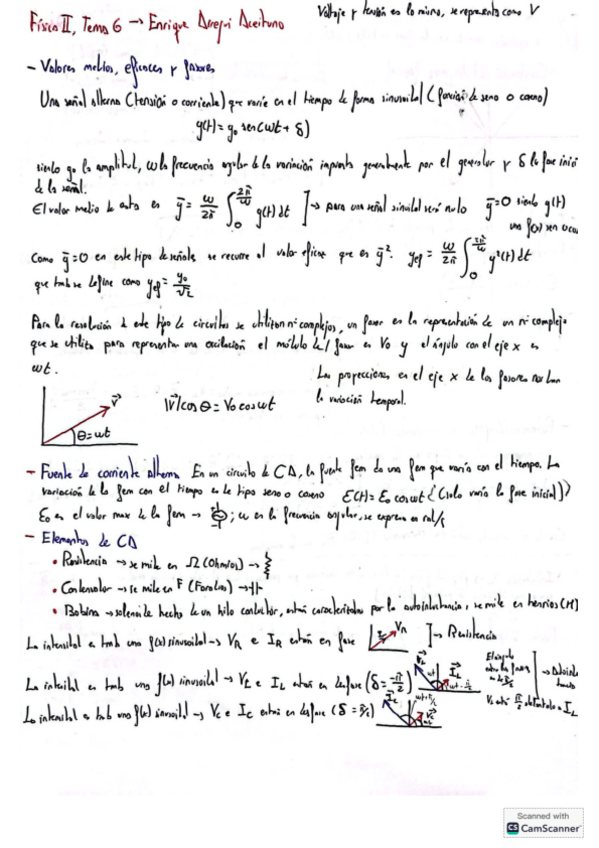 Física II, Tema 6 → Enrique Aregi Aceituno
Voltaje y tensión es lo mismo, se representa como V
- Valores medios, eficaces y fasores
Una señal alterna (tensión o corriente) que varíe en el tiempo de forma sinusoidal (función de seno o coseno)
y(t) = y₀ sen(ωt + δ)
siendo y₀ la amplitud, ω la frecuencia angular de la variación impuesta generalmente por el generador y δ la fase inici
de la señal.
El valor medio de esta es ȳ = ω/2π ∫₀^(2π/ω) y(t) dt ] → para una señal sinusoidal será nulo ȳ = 0 siendo y(t)
una f(x) sen o cos
Como ȳ = 0 en este tipo de señales se recurre al valor eficaz que es ȳ². yef = ω/2π ∫₀^(2π/ω) y²(t) dt
que tmb se define como yef = y₀/√2
Para la resolución d este tipo de circuitos se utilizan nº complejos, un fasor es la representación de un nº complejo
que se utiliza para representar una oscilación el módulo del fasor es V₀ y el ángulo con el eje x es
ωt.
Las proyecciones en el eje x de los fasores nos dan
la variación temporal.
V
θ = ωt
|V| cos θ = V₀ cos ωt
- Fuente de corriente alterna. En un circuito de CA, la fuente fem da una fem que varía con el tiempo. La
variación de la fem con el tiempo es de tipo seno o coseno ε(t) = ε₀ cos ωt (Solo varía la fase inicial)
ε₀ es el valor max de la fem → ; ω es la frecuencia angular, se expresa en rad/s
- Elementos de CA
• Resistencia → se mide en Ω (Ohmios) →
• Condensador → se mide en F (Faradios) →
• Bobina → solenoide hecho de un hilo conductor, están caracterizadas por la autoinductancia, se mide en henrios (H)
La intensidad es tmb una f(x) sinusoidal → V_R e I_R están en fase I_R V_R ] → Resistencia
La intensidad es tmb una f(x) sinusoidal → V_L e I_L están en desfase (δ = -π/2) V_L I_L ωt ωt - π/2
El ángulo
entre los fasores
es de π/2
V_L está π/2 adelantado a I_L
La intensidad es tmb una f(x) sinusoidal → V_C e I_C están en desfase (δ = π/2) I_C ωt + π/2 V_C ωt
Scanned with
CS CamScanner